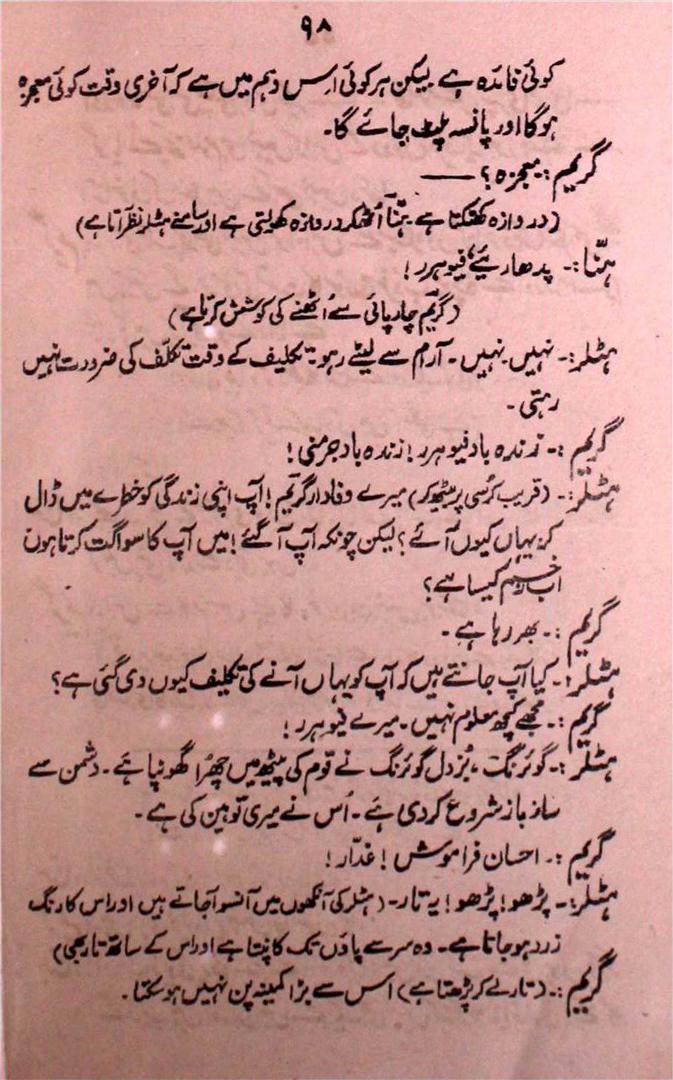 ۹۸
کوئی فائدہ ہے۔ لیکن ہر کوئی اِس وہم میں ہے کہ آخری وقت کوئی معجزہ
ہوگا اور پانسہ پلٹ جائے گا۔
گریم :۔ معجزہ؟ ——
(دروازہ کھٹکتا ہے۔ ہنّا اُٹھکر دروازہ کھولتی ہے اور سامنے ہٹلر نظر آتا ہے)
ہنّا :۔ پدھاریئے، فیوہرر!
(گریم چارپائی سے اُٹھنے کی کوشش کرتا ہے)
ہٹلر :۔ نہیں۔ نہیں۔ آرام سے لیٹے رہو۔ تکلیف کے وقت تکلّف کی ضرورت نہیں
رہتی۔
گریم :۔ زندہ باد فیوہرر! زندہ باد جرمنی!
ہٹلر :۔ (قریب کرسی پر بیٹھ کر) میرے وفادار گریم! آپ اپنی زندگی کو خطرے میں ڈال
کر یہاں کیوں آئے؟ لیکن چونکہ آپ آ گئے! میں آپ کا سواگت کرتا ہوں
اب زخم کیسا ہے؟
گریم :۔ بھر رہا ہے۔
ہٹلر :۔ کیا آپ جانتے ہیں کہ آپ کو یہاں آنے کی تکلیف کیوں دی گئی ہے؟
گریم :۔ مجھے کچھ معلوم نہیں۔ میرے فیوہرر!
ہٹلر :۔ گوئرنگ، بُزدل گوئرنگ نے قوم کی پیٹھ میں چھُرا گھونپا ہے۔ دشمن سے
ساز باز شروع کر دی ہے۔ اُس نے میری توہین کی ہے۔
گریم :۔ احسان فراموش! غدّار!
ہٹلر :۔ پڑھو! پڑھو! یہ تار۔ (ہٹلر کی آنکھوں میں آنسو آجاتے ہیں اور اس کا رنگ
زرد ہو جاتا ہے۔ وہ سر سے پاؤں تک کانپتا ہے اور اس کے ساتھ تار بھی)
گریم :۔ (تار لے کر پڑھتا ہے) اس سے بڑا کمینہ پن نہیں ہو سکتا۔